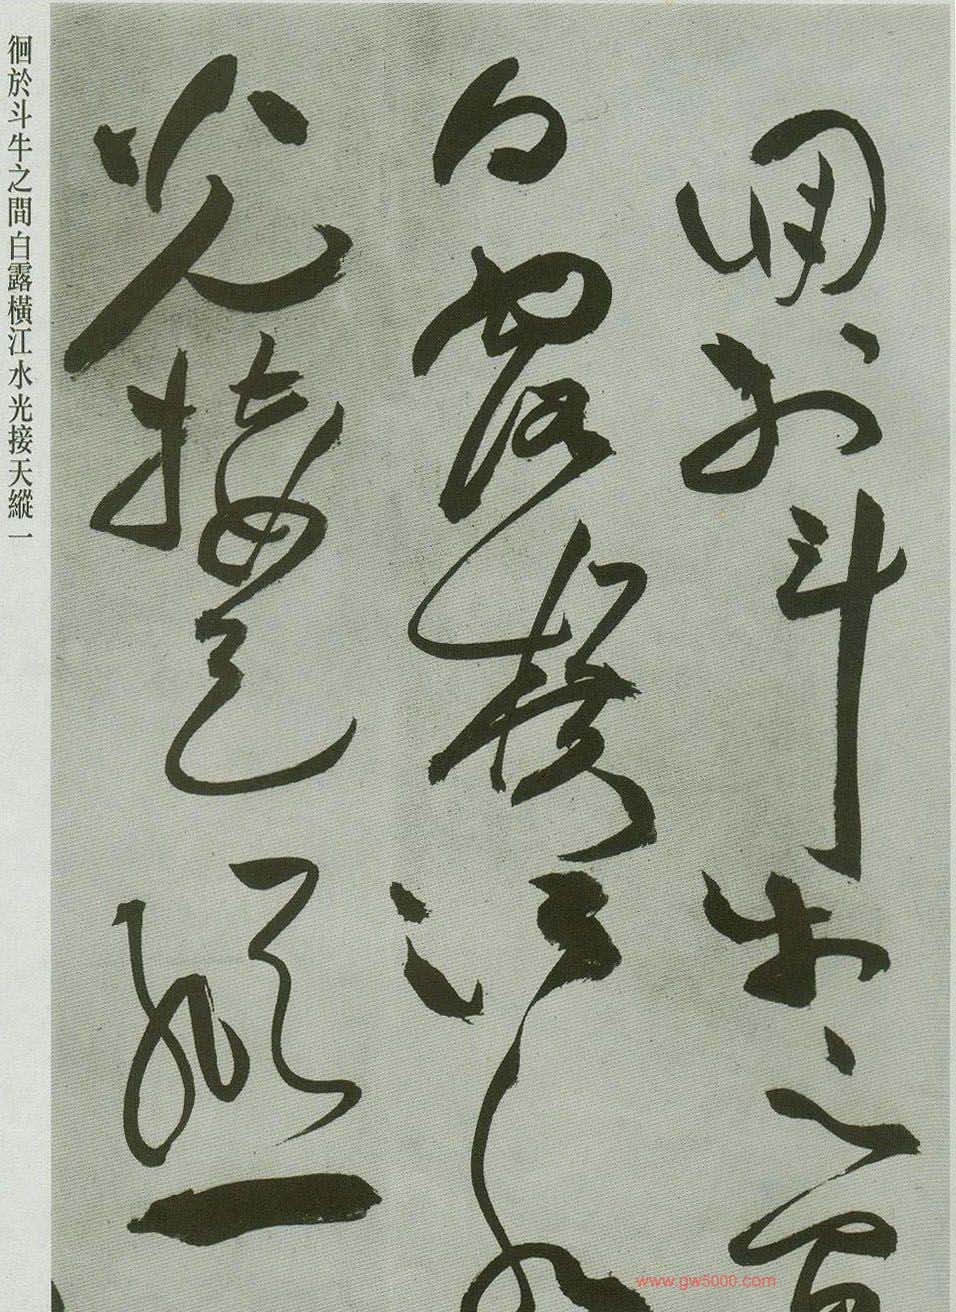 徊於斗牛之間
白露橫江水
光接天縱一
徊於斗牛之間白露橫江水光接天縱一
www.gw5000.com